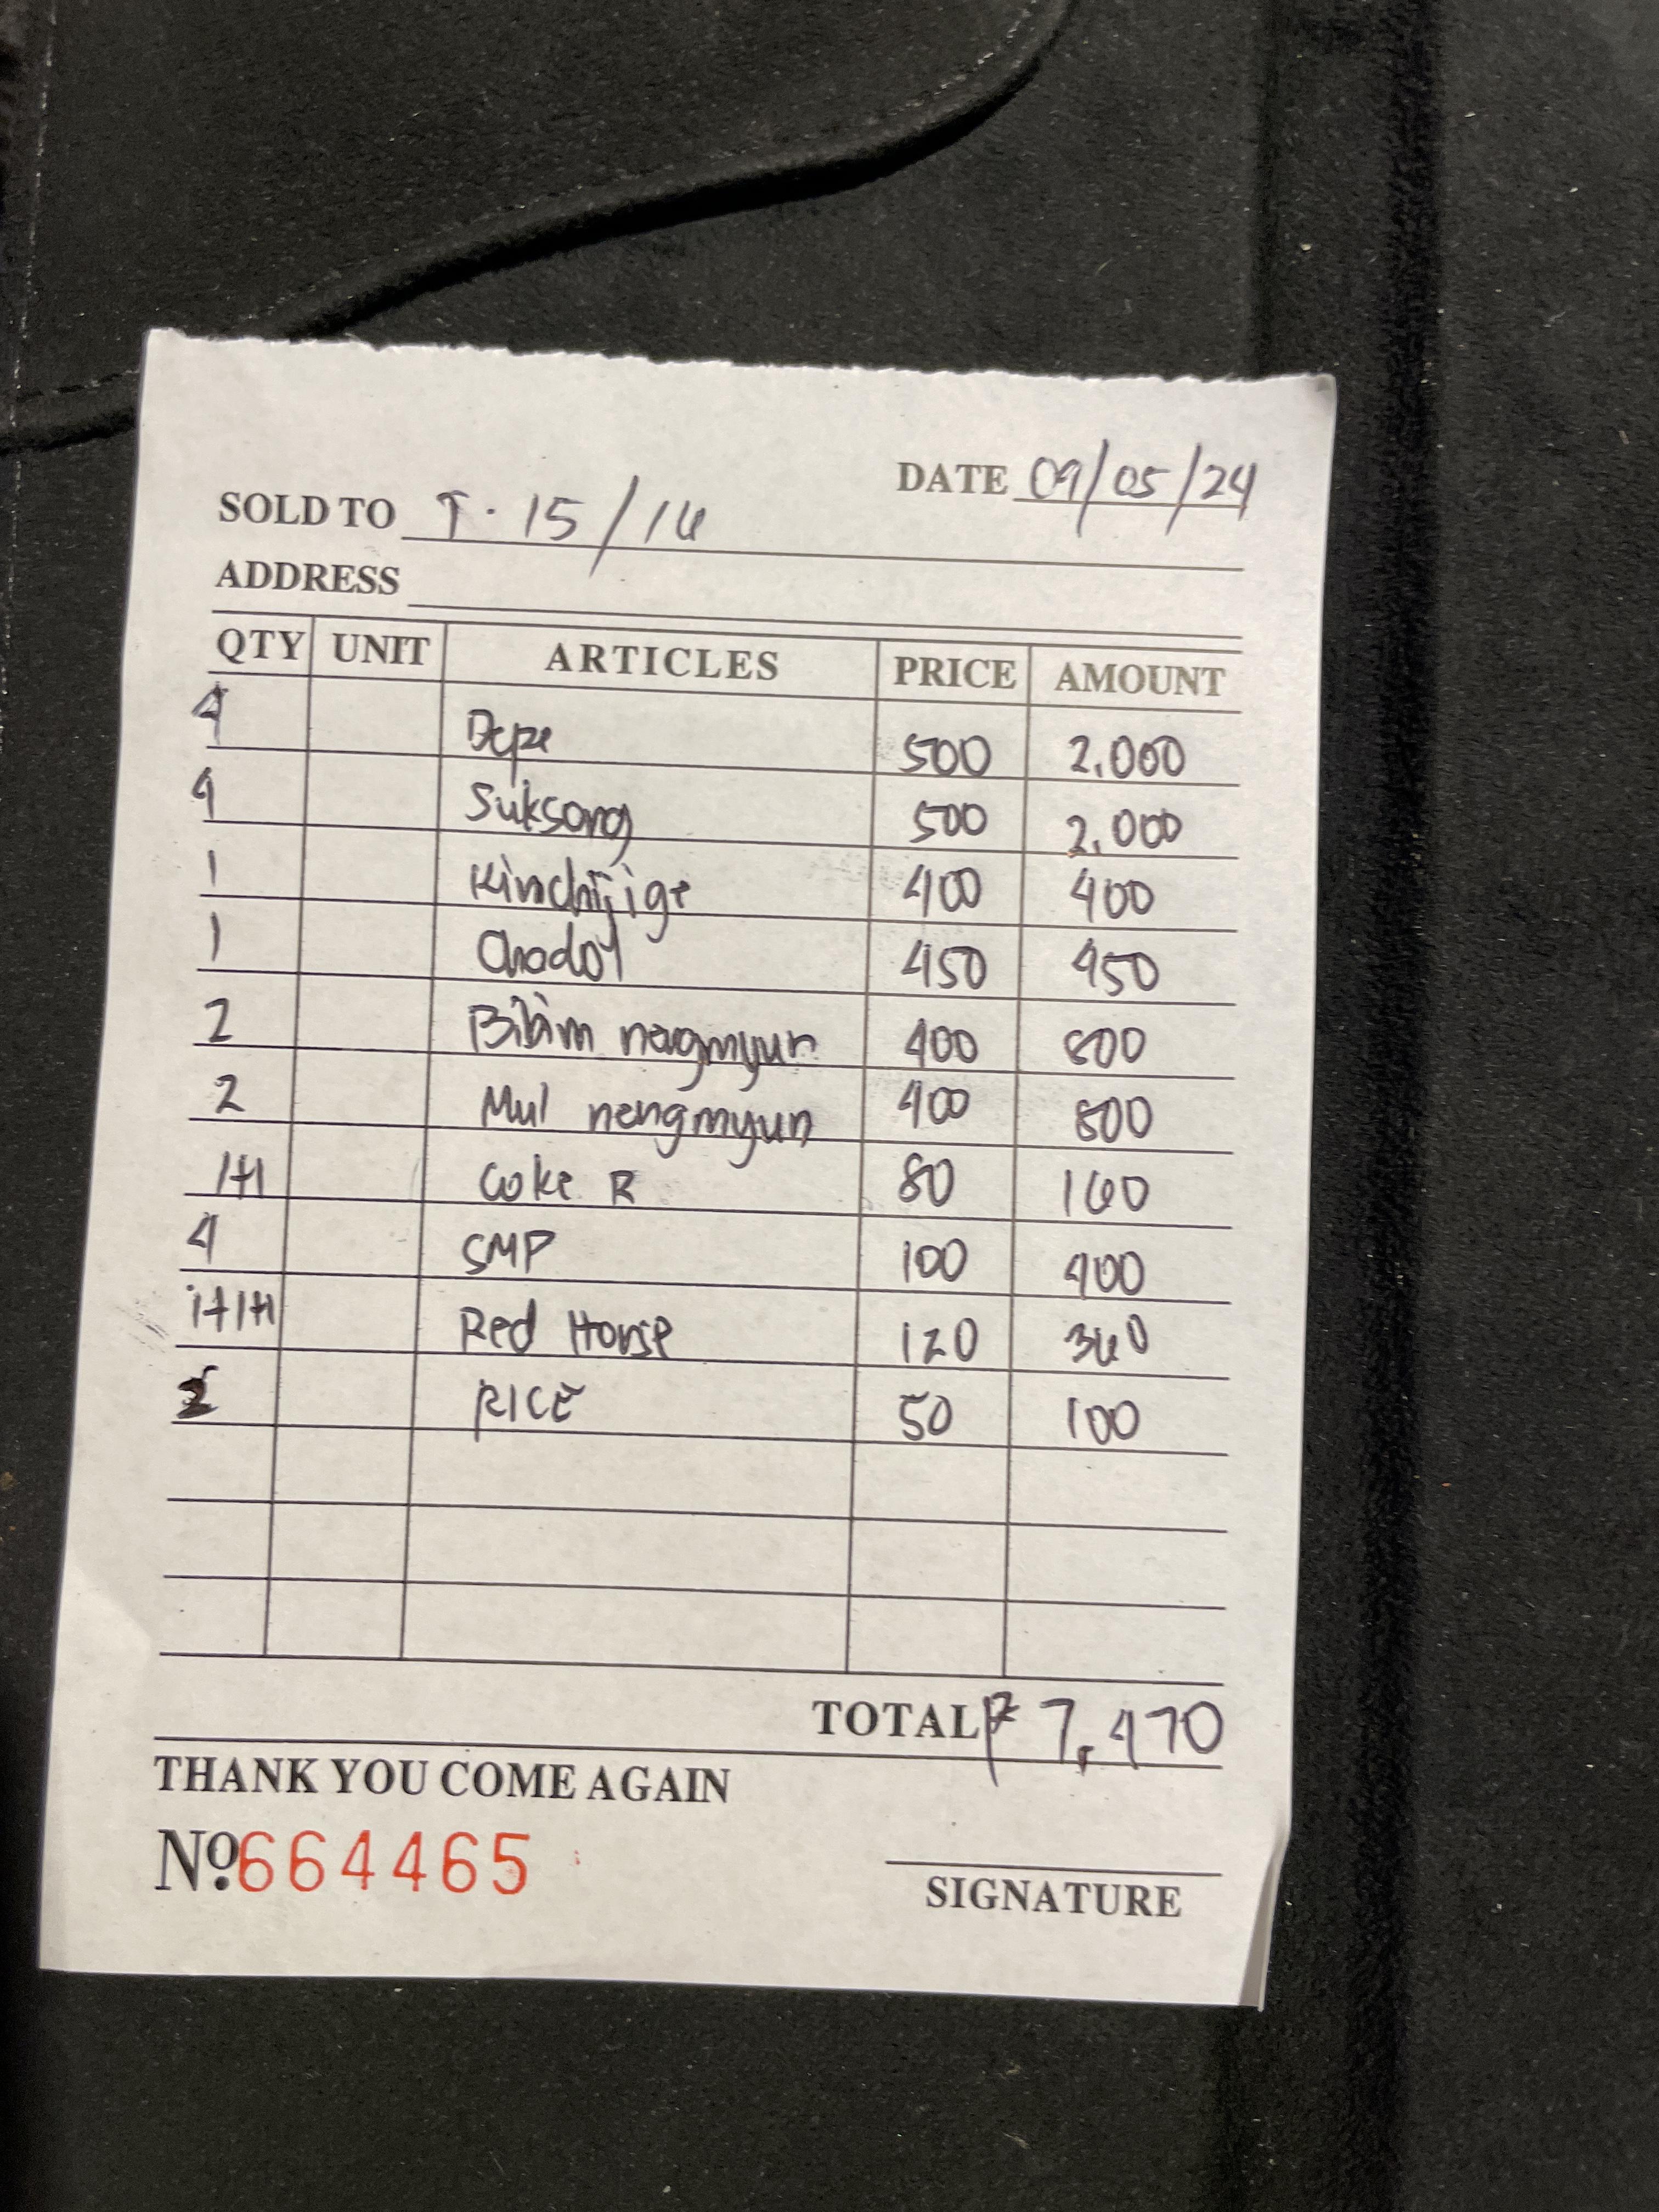 DATE 09/05/24
SOLD TO T. 15/16
ADDRESS
QTY UNIT ARTICLES PRICE AMOUNT
4 Depe 500 2,000
4 Suksong 500 2,000
1 Kimchijige 400 400
1 Chadol 450 450
2 Bibim nengmyun 400 800
2 Mul nengmyun 400 800
1+1 Coke R 80 160
4 SMP 100 400
1+1+1 Red Horse 120 360
2 RICE 50 100
TOTAL ₱ 7,470
THANK YOU COME AGAIN
Nº 664465
SIGNATURE